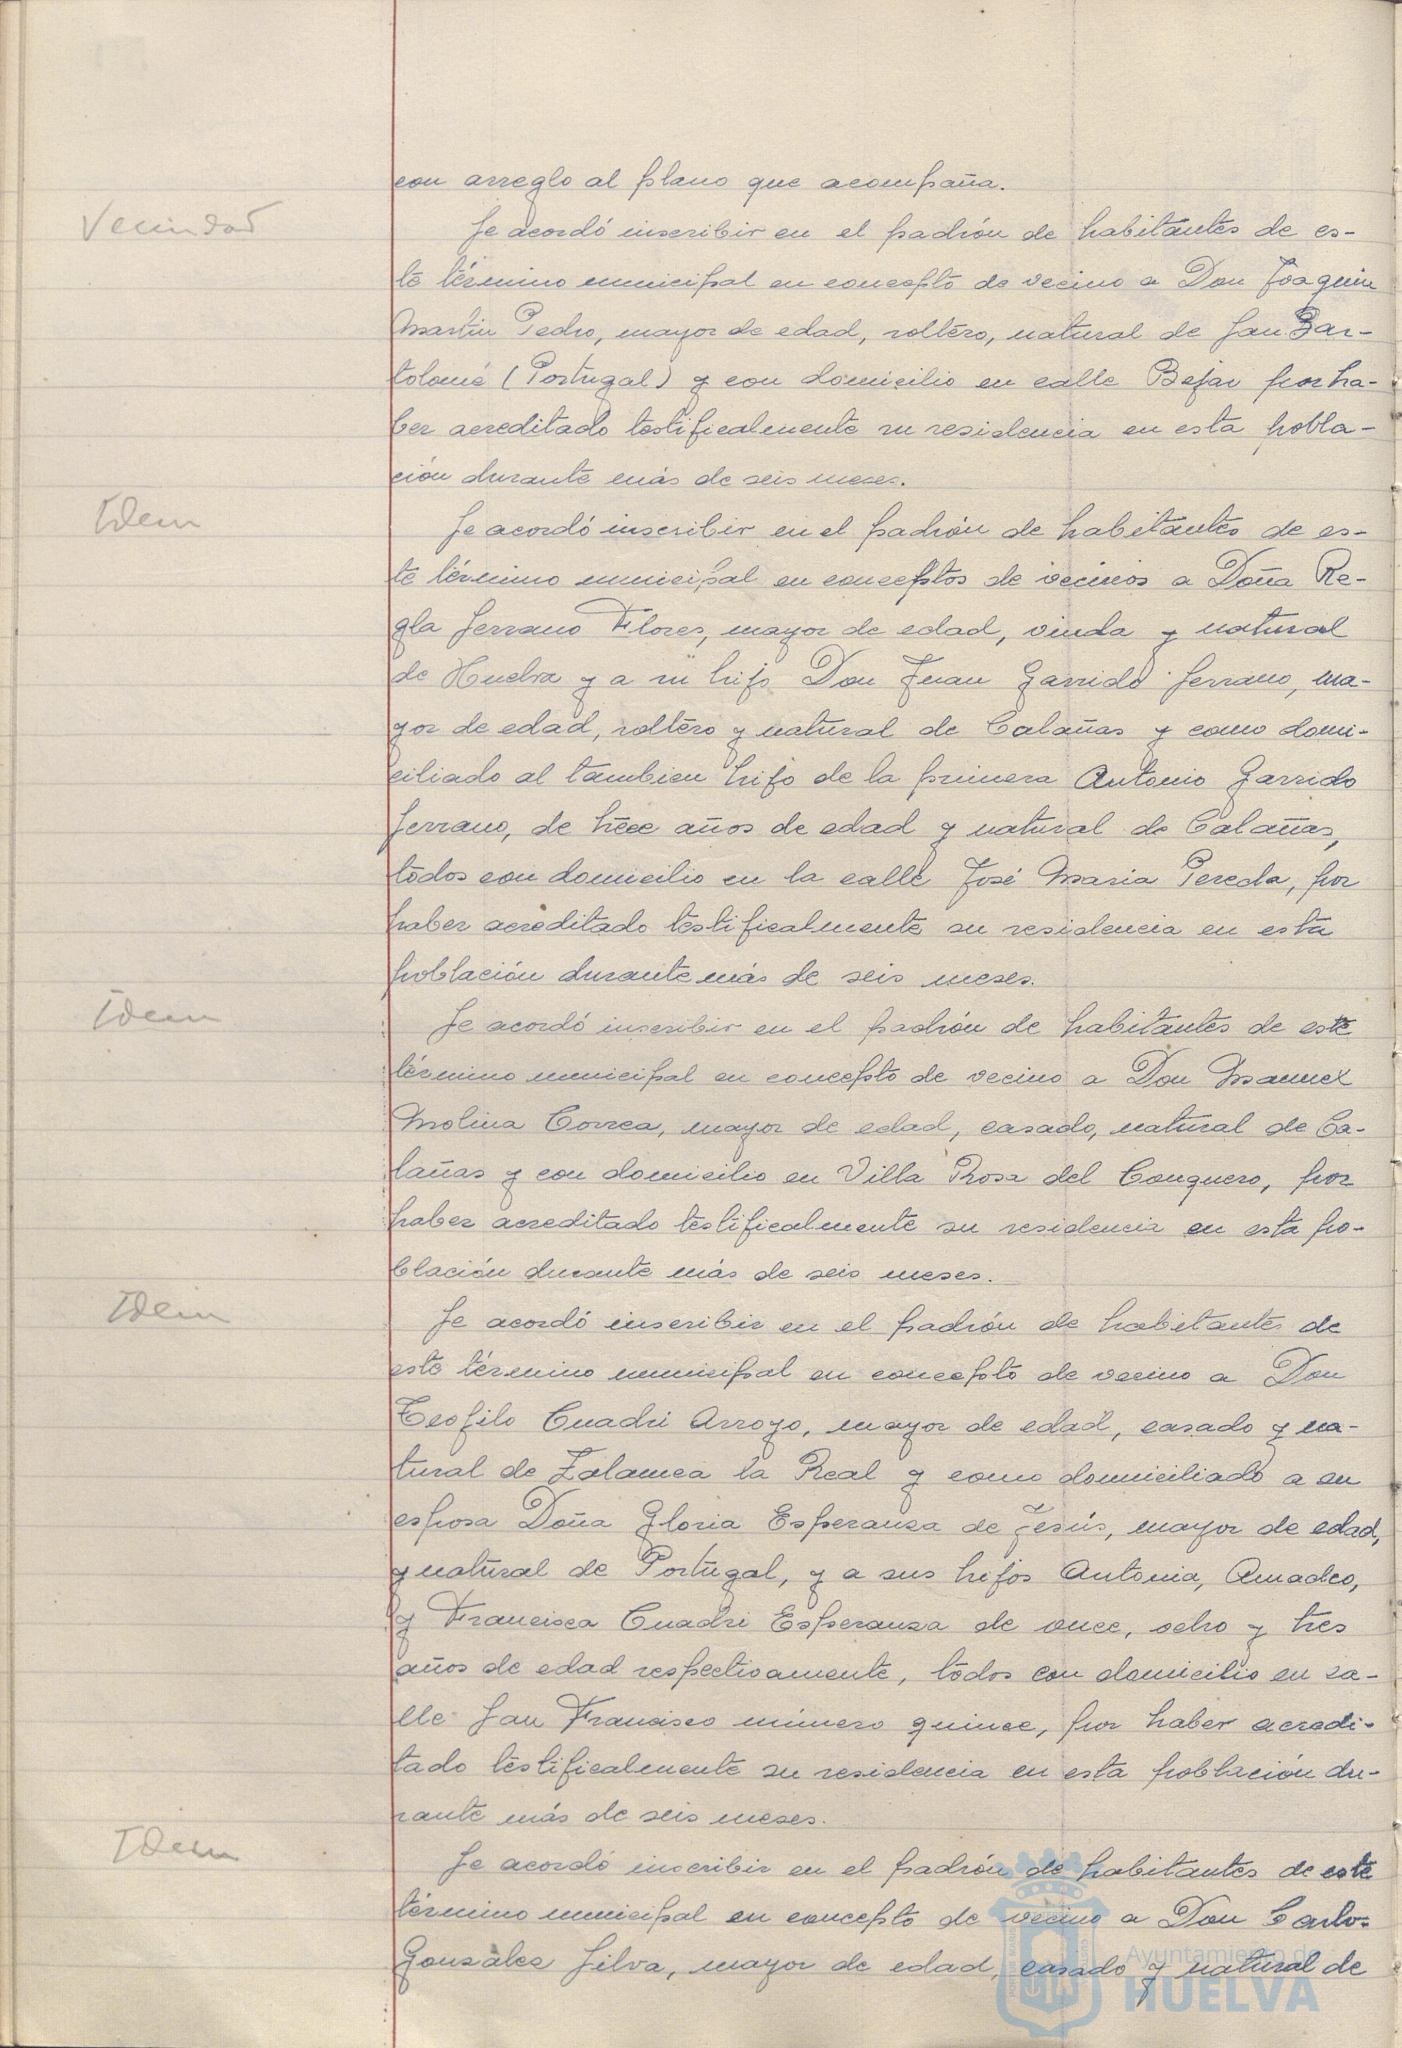 con arreglo al plano que acompaña.
Vecindad
Se acordó inscribir en el padrón de habitantes de es-
te término municipal en concepto de vecino a Don Joaquin
Martin Pedro, mayor de edad, soltero, natural de San Bar-
tolomé (Portugal) y con domicilio en calle Bejar por ha-
ber acreditado testificalmente su residencia en esta pobla-
ción durante más de seis meses.
Idem
Se acordó inscribir en el padrón de habitantes de es-
te término municipal en conceptos de vecinos a Doña Re-
gla Serrano Flores, mayor de edad, viuda y natural
de Huelva y a su hijo Don Juan Garrido Serrano, ma-
yor de edad, soltero y natural de Calañas y como domi-
ciliado al tambien hijo de la primera Antonio Garrido
Serrano, de trece años de edad y natural de Calañas,
todos con domicilio en la calle José Maria Pereda, por
haber acreditado testificalmente su residencia en esta
población durante más de seis meses.
Idem
Se acordó inscribir en el padrón de habitantes de este
término municipal en concepto de vecino a Don Manuel
Molina Correa, mayor de edad, casado, natural de Ca-
lañas y con domicilio en Villa Rosa del Conquero, por
haber acreditado testificalmente su residencia en esta po-
blación durante más de seis meses.
Idem
Se acordó inscribir en el padrón de habitantes de
este término municipal en concepto de vecino a Don
Teofilo Cuadri Arroyo, mayor de edad, casado y na-
tural de Zalamea la Real y como domiciliado a su
esposa Doña Gloria Esperanza de Jesús, mayor de edad,
y natural de Portugal, y a sus hijos Antonia, Amadeo,
y Francisca Cuadri Esperanza de once, ocho y tres
años de edad respectivamente, todos con domicilio en ca-
lle San Francisco número quince, por haber acredi-
tado testificalmente su residencia en esta población du-
rante más de seis meses.
Idem
Se acordó inscribir en el padrón de habitantes de este
término municipal en concepto de vecino a Don Carlos
Gonzalez Silva, mayor de edad, casado y natural de
Ayuntamiento de
HUELVA